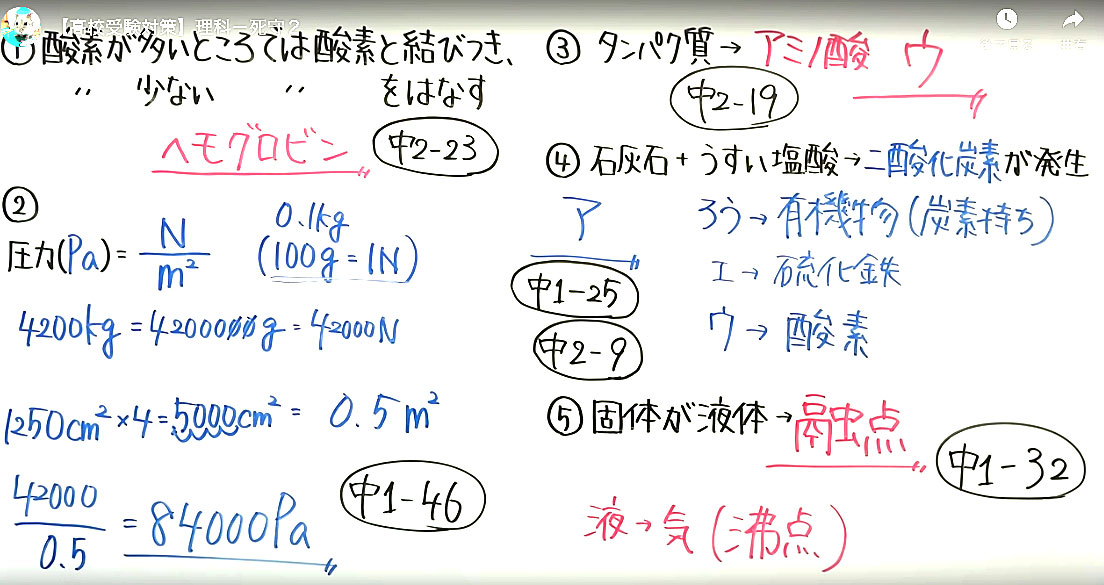 【高校受験対策】理科－死守2
① 酸素が多いところでは酸素と結びつき、
〃 少ない 〃 をはなす
ヘモグロビン 中2-23
②
圧力(Pa) = N/m² 0.1kg (100g = 1N)
4200kg = 4200000g = 42000N
1250cm² × 4 = 5000cm² = 0.5m²
42000/0.5 = 84000Pa 中1-46
③ タンパク質→アミノ酸 ウ
中2-19
④ 石灰石 + うすい塩酸→二酸化炭素が発生
ア ろう→有機物(炭素持ち)
エ→硫化鉄
中1-25
ウ→酸素
中2-9
⑤ 固体が液体→融点
中1-32
液→気(沸点)